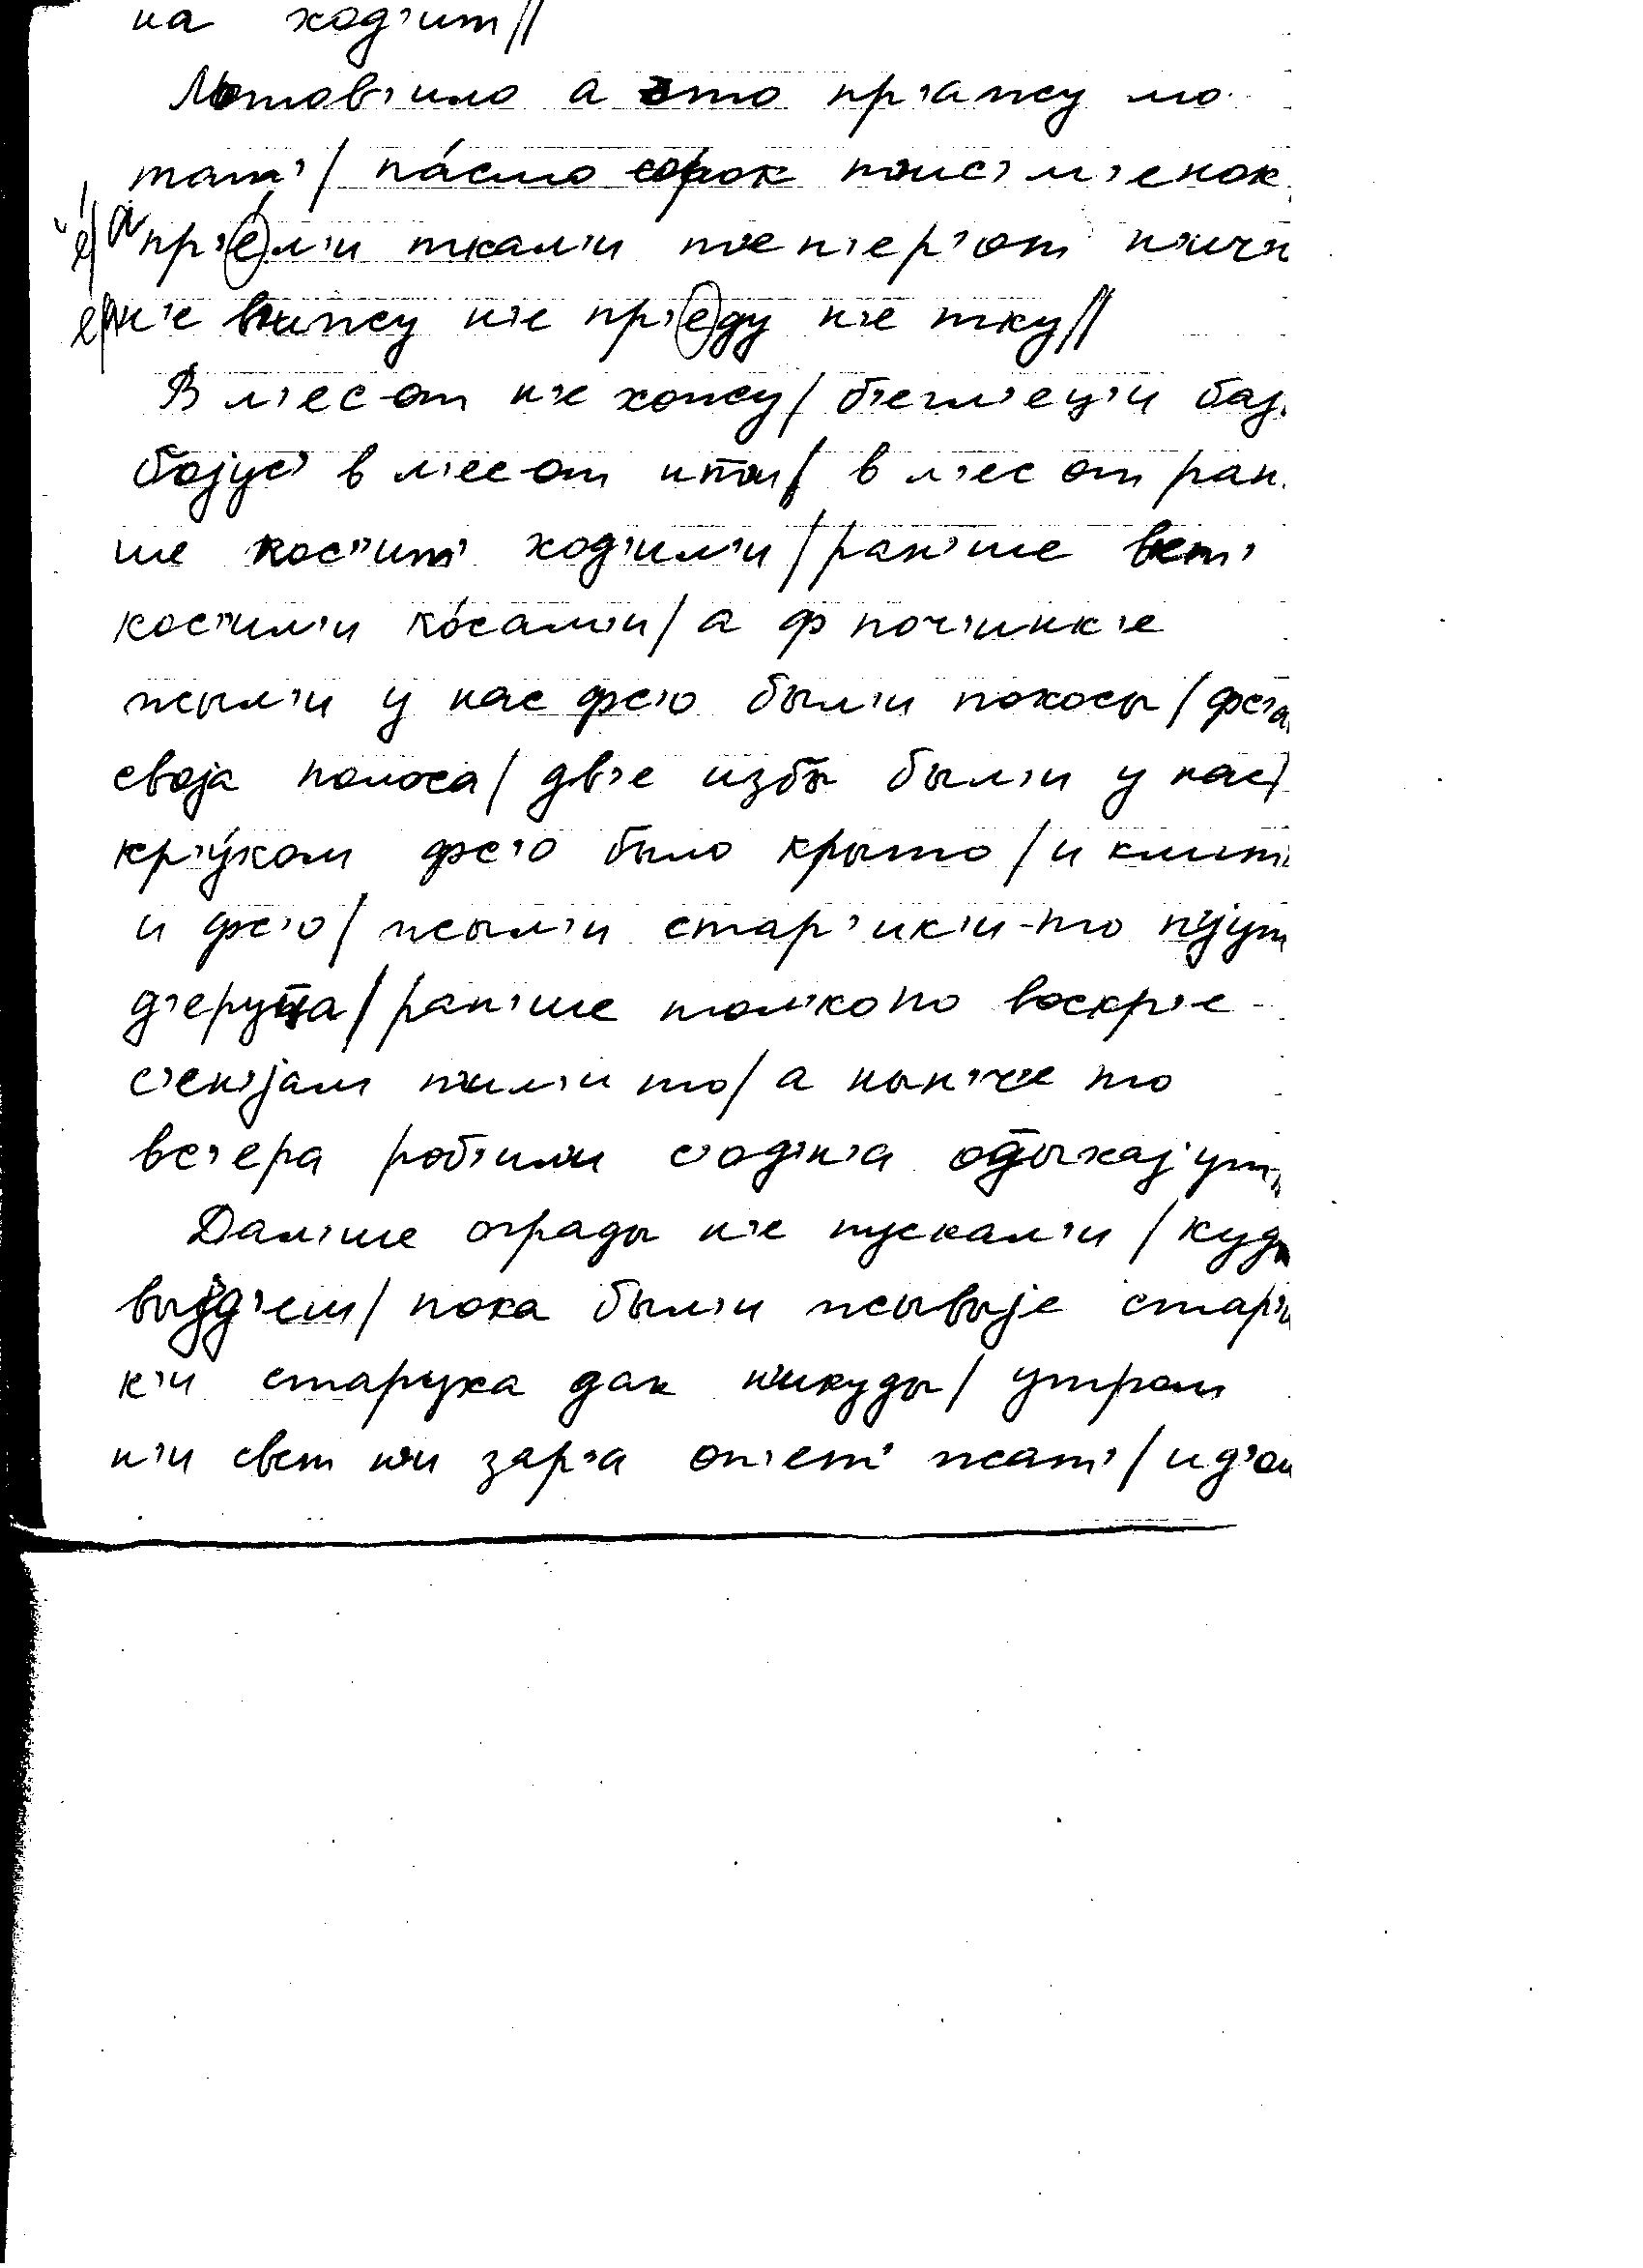 на ход'ит//
Мотов'ило а это пр'ажу мо-
тат'/ па́смо сорок тыс'м'енок
ё/а пр'ёл'и ткал'и т'еп'ер'от н'ич'и
е/н'е в'ижу н'е пр'еду н'е тку//
В л'ес-от н'е хожу/ б'егл'ец'и бај
бојус' в л'ес-от ит'и/ в л'ес от ран'
ше кос'ит' ход'ил'и/ ран'ше вет'
кос'ил'и ко́сам'и/ а ф поч'инк'е
жыл'и у нас фс'о был'и покосы/ фс'а
своја полоса/ дв'е избы был'и у нас/
кр'у́ком фс'о было крыто/ и клит'
и фс'о/ жыл'и стар'ик'и-то п'јут
д'еруц̄а/ ран'ше тол'ко по воскр'е-
с'ен'јам п'ил'и то/ а нын'ч'е то
вс'ера роб'ил'и с'од'н'а од̄ыхајут
Дал'ше ограды н'е пускал'и/ куды
выјд'еш/ пока был'и жывыје стар'и
к'и старуха дак н'икуды/ утром
н'и свет н'и зар'а оп'ет' жат'/ ид'ош